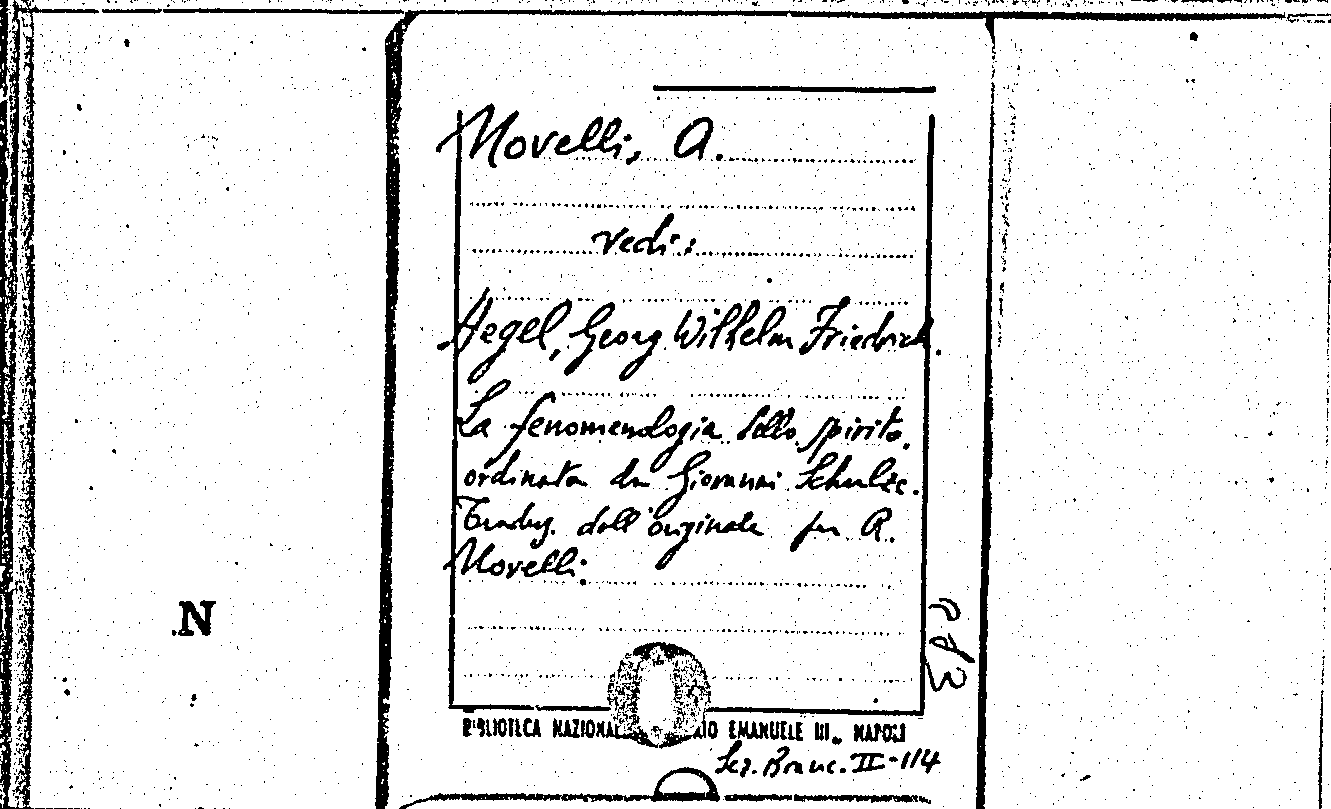 Novelli, A.
vedi:
Hegel, Georg Wilhelm Friedrich.
La fenomenologia dello spirito,
ordinata da Giovanni Schulze.
Traduz. dall'originale per A.
Novelli.
N
BIBLIOTECA NAZIONALE EMANUELE III, NAPOLI
Sez. Branc. II-114